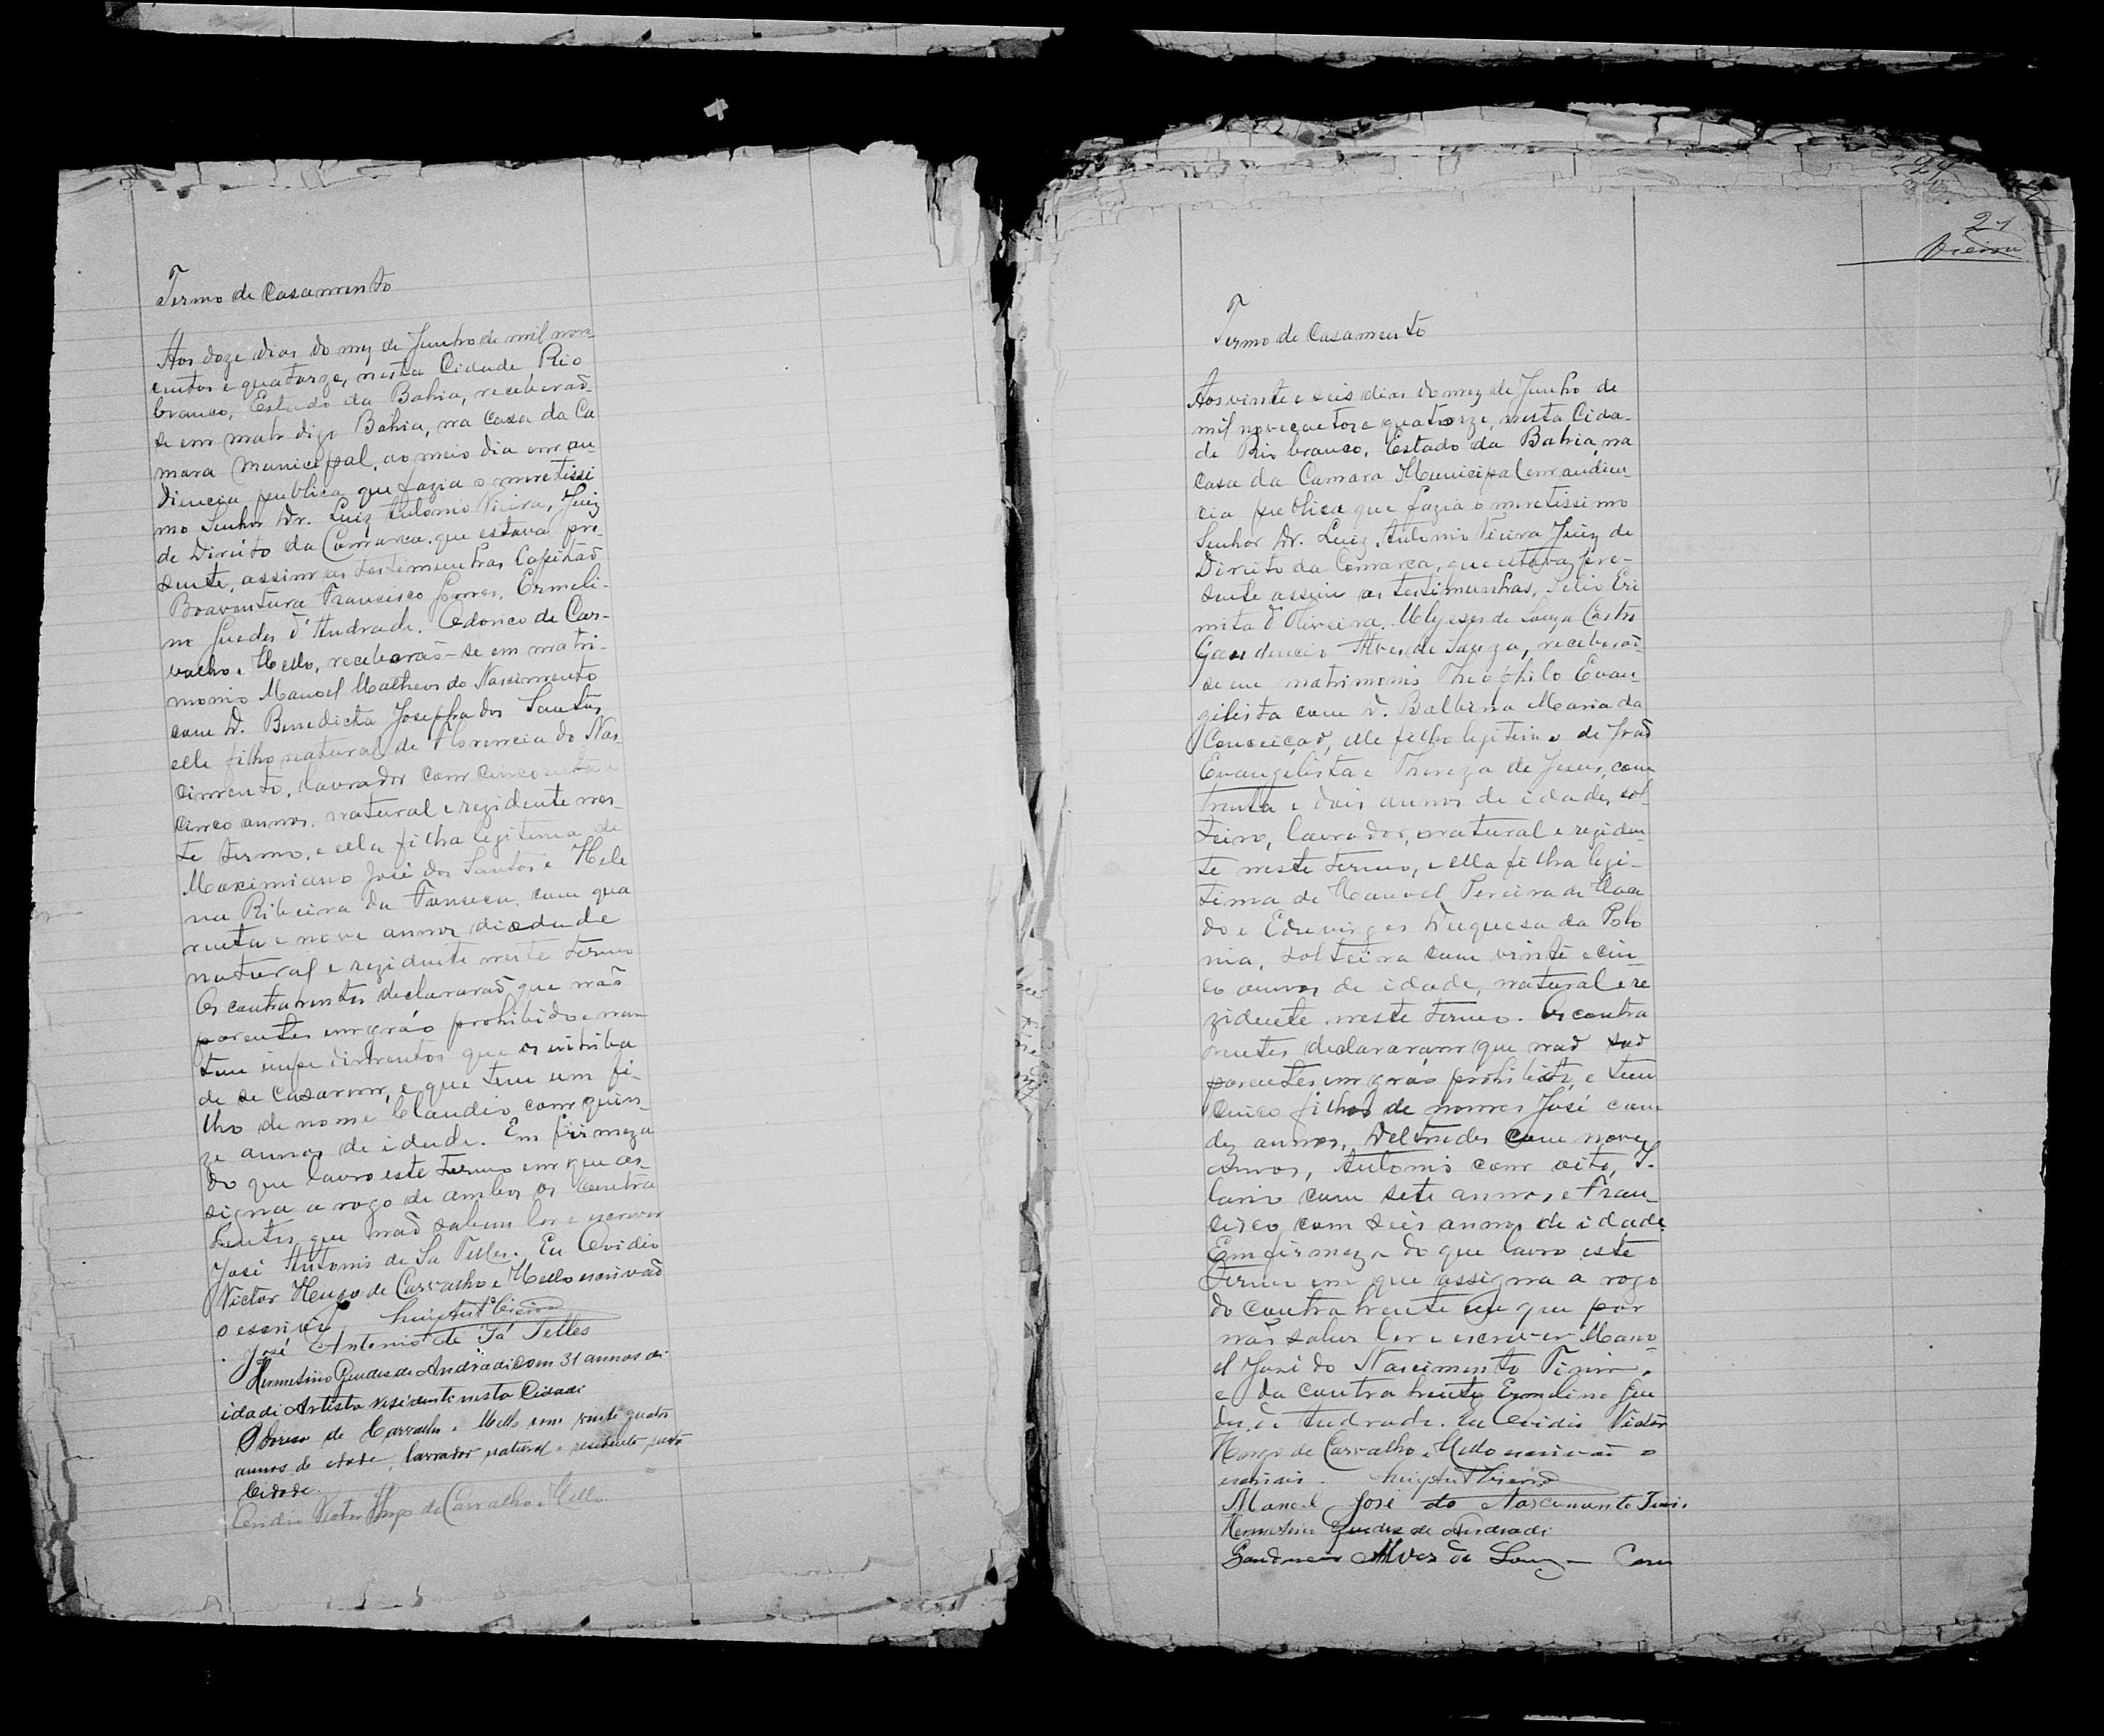 Termo de Casamento
Aos doze dias do mez de Junho de mil nove-
centos e quatorze, nesta Cidade Rio
branco, Estado da Bahia, receberaõ-
se em matr digo Bahia, na casa da Ca
mara Municipal, ao meio dia em au-
diencia publica que fazia o meretissi
mo Senhor Dr. Luiz Antonio Vieira, Juiz
de Direito da Comarca, que estava pre-
sente, assim as testimunhas Capitaõ
Boaventura Francisco Gomes, Ermeli-
no Guedes d'Andrade. Odorico de Car-
valho e Mello, receberaõ-se em matri-
monio Manoel Matheos do Nascimento
com D. Benedicta Josepha dos Santos
elle filho natural de Florencia do Nas-
cimento, lavrador com cincoenta e
cinco annos, natural e rezidente nes-
te termo, e ella filha legitima de
Maximiano José dos Santos e Hele
na Ribeira da Fonseca, com qua
renta e nove annos di edade
natural e rezidente neste termo
Os contrahentes declararaõ que naõ
parentes em gráo prohibido e nem
tem impedimentos que os inhiba
de se casarem, e que tem um fi-
lho de nome Claudio com quin-
ze annos de idade. Em firmeza
do que lavro este termo em que as-
signa a rogo de ambos os contra
hentes que naõ sabem ler e escrever
José Antonio de Sa Telles. Eu Ovidio
Victor Hugo de Carvalho e Mello escrivaõ
o escrivi Luiz Antº Vieira
José Antonio de Sá Telles
Hermelino Guedes de Andradi com 31 annos di
idadi Artista residenti nesta Cidadi
Odorico de Carvalho e Mello com vinte quatro
annos de edade, lavrador natural e residente nesta
Cidade.
Ovidio Victor Hugo de Carvalho e Mello
21
Vieira
Termo de Casamento
Aos vinte e seis dias do mez de Junho de
mil novecentos e quatorze, nesta Cida-
de Rio branco, Estado da Bahia, na
casa da Camara Municipal em audien-
cia publica que fazia o meretissimo
Senhor Dr. Luiz Antonio Vieira Juiz de
Direito da Comarca, que estava pre-
sente assim as testimunhas, Eri
mita d'Oliveira. Ulysses de Souza Castro
Gaudencio Alves de Souza, receberaõ
se em matrimonio Theophilo Evan-
gilista com D. Balbina Maria da
Conceiçaõ, elle filho legitimo de Joaõ
Evangelista e Thereza de Jesus, com
trinta e dois annos de idade, sol-
teiro, lavrador, natural e reziden-
te neste termo, e ella filha legi-
tima de Manoel Pereira de
do e Eduviges Duquesa da Polo
nia, solteira com vinte e cin-
co annos de idade, natural e re
zidente neste termo. Os contra
hentes declararam que naõ saõ
parentes em gráo prohibido, e tem
cinco filhos de nomes José com
dez annos, com nove
annos, Antonio com oito,
lario com sete annos, e Fran-
cisco com seis annos de idade.
Em firmeza do que lavro este
termo em que assigna a rogo
do contrahente em que por
naõ saber ler e escrever Mano-
el José do Nascimento
e da contrahente Ermelino Gue
des de Andrade. Eu Ovidio Victor
Hugo de Carvalho e Mello escrivaõ o
escrivi. Luiz Antº Vieira
Manoel José do Nascimento
Hermelino Guedes de Andradi
Gaudencio Alves de Souza Com